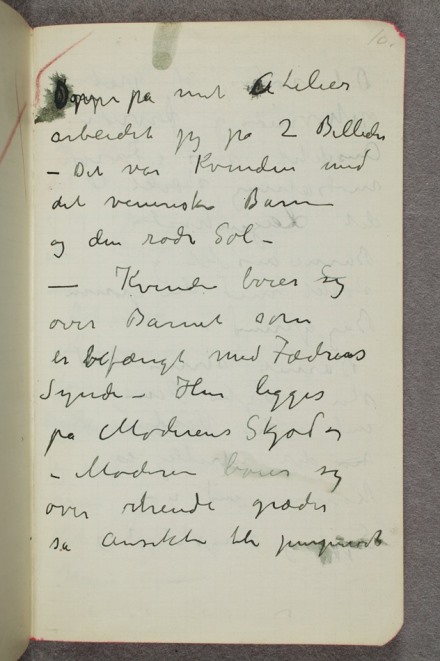 10.
Oppe på mit Atelier
arbeidet jeg på 2 Billeder
– Det var Kvinden med
det veneriske Barn
og den røde Sol –
— Kvinden bøier sig
over Barnet som
er befængt med Fædrenes
Synde – Hun ligger
på Moderens Skjød
– Moderen bøier sig
over det græder
så ansikte ble purpurrødt